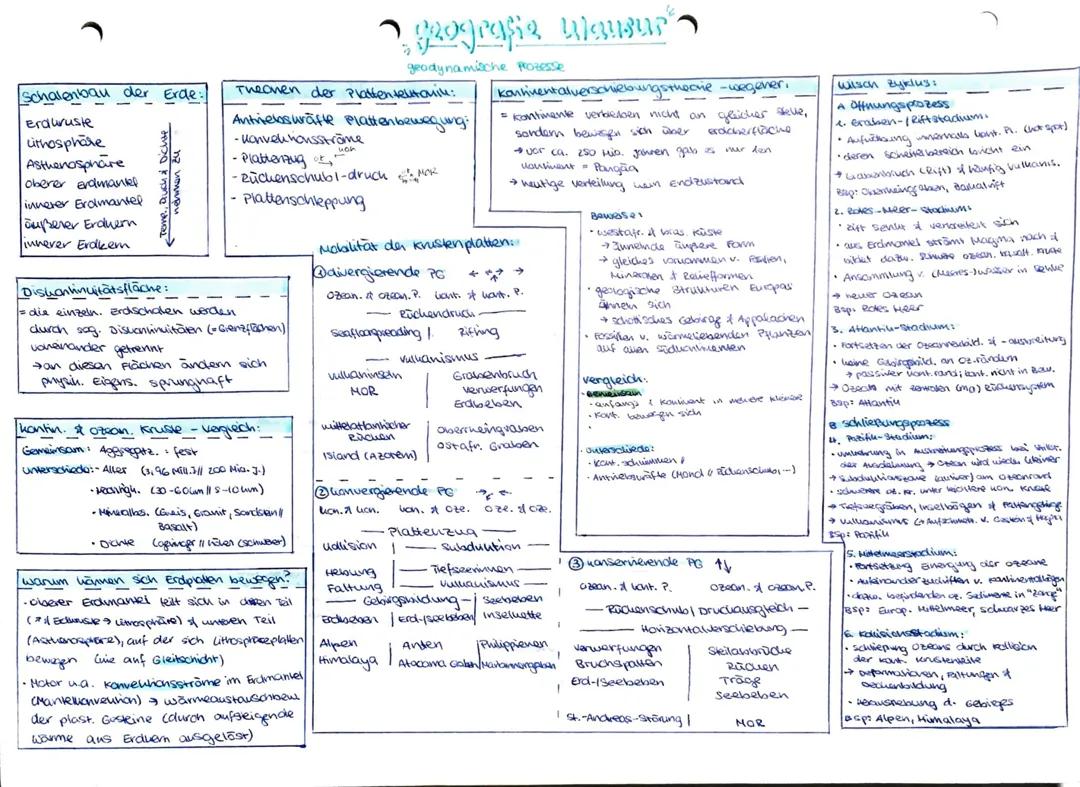 geografie Klausur
geodynamische Prozesse
Schalenbau der Erde:
Erdkruste
Lithosphäre
Asthenosphäre
oberer Erdmantel
innerer Erdmantel
äußerer Erdkern
innerer Erdkern
Temp., Druck & Dichte
nehmen zu
Diskontinuitätsfläche:
= die einzeln. Erdschalen werden
durch sog. Diskontinuitäten (=Grenzflächen)
voneinander getrennt
→ an diesen Flächen ändern sich
physik. Eigens. sprunghaft
kontin. & ozean. Kruste - Vergleich:
Gemeinsam: Aggregatz.: fest
Unterschiede: - Alter (3,96 Mill.J// 200 Mio. J.)
• Mächtigk. (30-60km // 5-10km)
• Mineralbes. (Gneis, Granit, Sandstein//
Basalt)
• Dichte
Warum können sich Erdplatten bewegen?
• oberer Erdmantel teilt sich in oberen Teil
(+ Erdkruste → Lithosphäre) & unteren Teil
(Asthenosphäre), auf der sich Lithosphärenplatten
bewegen (wie auf Gleitschicht)
• Motor u.a. Konvektionsströme im Erdmantel
(Mantelkonvektion) → Wärmeaustauschbew.
der plast. Gesteine (durch aufsteigende
Wärme aus Erdkern ausgelöst)
Theorien der Plattentektonik:
Antriebskräfte Plattenbewegung:
- Konvektionsströme
- Plattenzug
- Rückenschub/-druck MOR
- Plattenschleppung
Mobilität der Krustenplatten:
① divergierende PG ← →
Ozean. & ozean. P. kont. & kont. P.
Rückendruck
Seafloorspreading /. Rifting
Vulkanismus
Vulkaninseln
MOR
Grabenbruch
Verwerfungen
Erdbeben
Mittelatlantischer
Rücken
Island (Azoren)
Oberrheingraben
Ostafr. Graben
② konvergierende PG → ←
kon. & kon. kon. & oze. oze. & oze.
Plattenzug
Kollision | Subduktion
Hebung
Faltung
Tiefseerinnen
Vulkanismus
Gebirgsbildung | Seebeben
Erdbeben | Erd-/Seebeben | Inselkette
Alpen | Anden | Philippinen
Himalaya | Atacama Graben | Marianengraben
③ konservierende PG ↑↓
ozean. & kont. P. ozean. & ozean. P.
Rückenschub / Druckausgleich
Horizontalverschiebung
Verwerfungen
Bruchspalten
Erd-/Seebeben
Rücken
Tröge
Seebeben
St.-Andreas-Störung | MOR
Kontinentalverschiebungstheorie - Wegener:
= Kontinente verbleiben nicht an gleicher Stelle,
sondern bewegen sich über Erdoberfläche
→ vor ca. 250 Mio. Jahren gab es nur den
Kontinent = Pangäa
→ heutige Verteilung kein Endzustand
Beweise:
• westafr. & bras. Küste
→ ähnelnde äußere Form
→ gleiches Vorkommen v. Fossilien,
Mineralien & Reliefformen
• geologische Strukturen Europas
ähneln sich
→ schottisches Gebirge & Appalachen
• Fossilien v. wärmeliebenden Pflanzen
auf allen Südkontinenten
Vergleich:
• Gemeinsam
- anfangs 1 Kontinent in mehrere kleinere
- Kont. bewegen sich
Unterschiede:
- Kont. schwimmen //
- Antriebskräfte (Mond // Rückenschub, ...)
Wilson Zyklus:
A Öffnungsprozess
1. Graben-/Riftstadium:
• Aufwölbung innerhalb kont. Pl. (hot spot)
• deren Scheitelbereich bricht ein
→ Grabenbruch (Rift) & häufig Vulkanis.
Bsp: Oberrheingraben, Baikalrift
2. Rotes-Meer-Stadium:
• Rift senkt & verbreitert sich
• aus Erdmantel strömt Magma nach &
bildet ozean. Kruste
• Ansammlung v. (Meeres-)wasser in Senke
→ neuer Ozean
Bsp: Rotes Meer
3. Atlantik-Stadium:
• Fortsetzen der Ozeanneubild. & -ausbreitung
• keine Gebirgsbild. an Oz.rändern
→ passiver kont.rand; kont. nicht in Bew.
→ Ozean mit zentralen (MO) Rückensystem
Bsp: Atlantik
B Schließungsprozess
4. Pazifik-Stadium:
der Ausdehnung → Ozean wird wieder kleiner
→ Subduktionszone (aktiver) am Ozeanrand
• schwerere oz. Kr. unter leichtere kon. Kruste
→ Tiefseegräben, Inselbögen & Faltengebirge
Bsp: Pazifik
5. Mittelmeerstadium:
• Fortsetzung Einengung der Ozeane
• Aufeinanderzudriften v. Kontinentalblöcken
• dazw. befindenden oz. Sedimente in "Zange"
Bsp: Europ. Mittelmeer, schwarzes Meer
6. Kollisionsstadium:
• Schließung Ozeans durch Kollision
der kont. Krustenteile
→ Deformationen, Faltungen &
Deckenbildung
• Heraushebung d. Gebirges
Bsp: Alpen, Himalaya